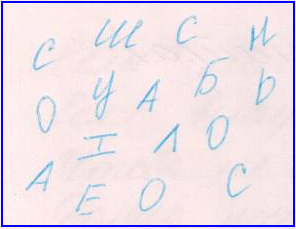 С Ш С Н
О У А Б Ь
І Л О
А Е О С